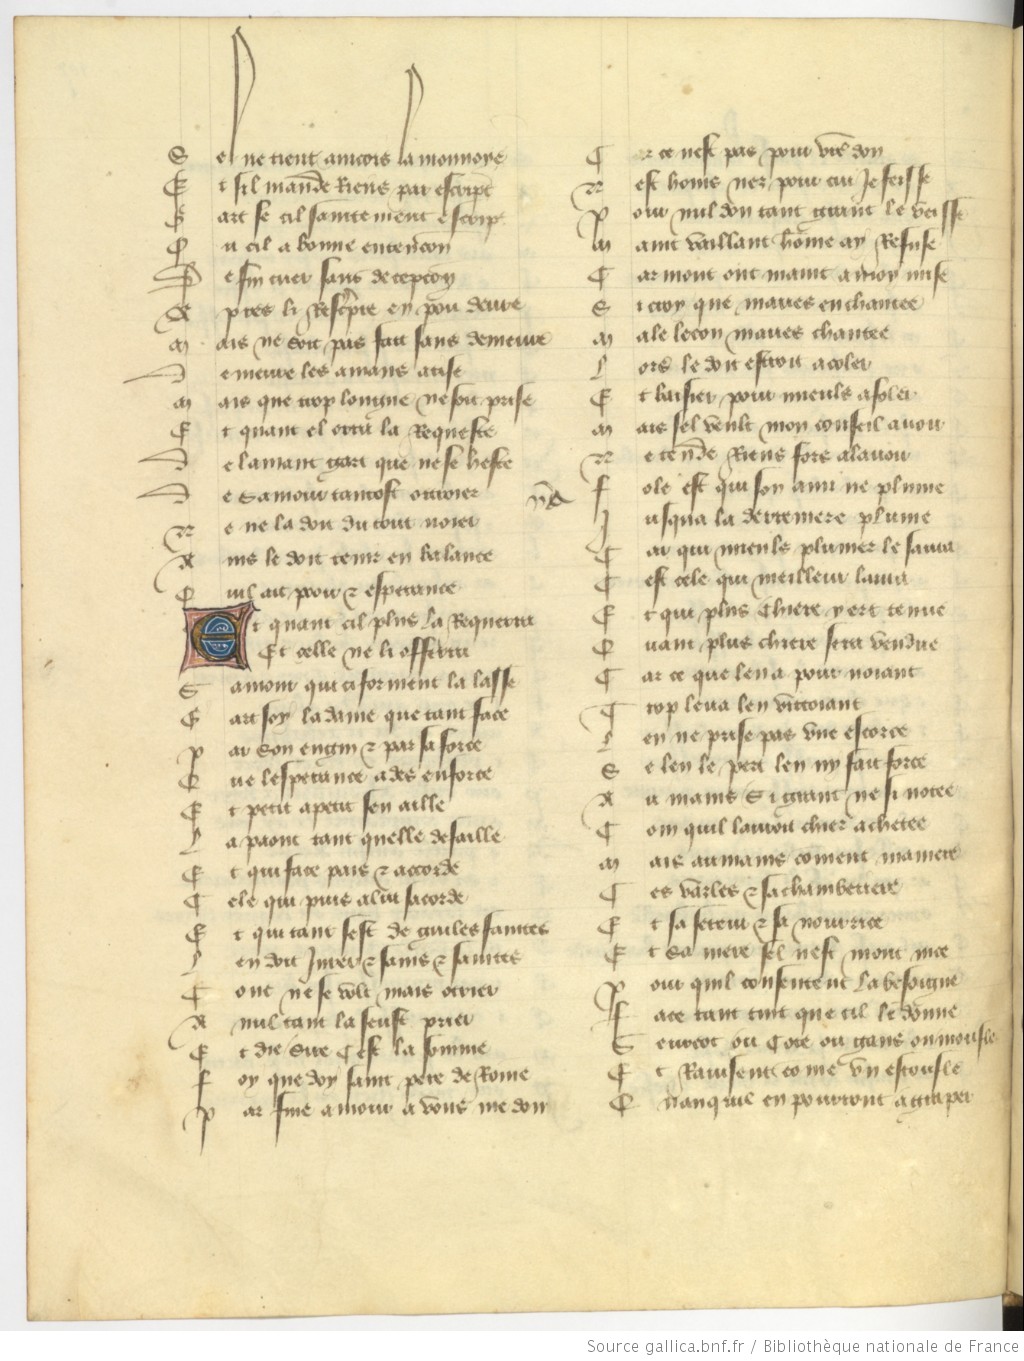 S el ne tient aincois la monnoye
E t sil mande Riens par escript
G art se cil faintement escript
O u cil a bonne entencon
D e fin cuer sans decepcon
A pres li Rescripte en pou deure
M ais ne soit pas fait sans demeure
D emeure les amans atise
M ais que trop longue ne soit prise
E t quant el orra la Requeste
D e lamant gart que ne se heste
D e samour tantost ottroier
N e ne la doit du tout noier
A ins le doit tenir en balance
Q uil ait paour et esperance
E t quant cil plus la Requerra
Et celle ne li offerra
S amour qui si forment la lasse
G art soy la dame que tant face
P ar son engin et par sa force
Q ue lesperance ades enforce
E t petit a petit sen aille
L a paour tant quelle defaille
E t qui face pais et accorde
C ele qui puis a lui sacorde
E t qui tant scet de guiles faintes
L en doit Jurer et sains et saintes
C onc ne se volt mais otrier
A nul tant la seust prier
E t die Sire Cest la somme
F oy que doy saint pere de Rome
P ar fine amour a vous me don
C ar ce nest pas pour vre don
N est homs nez pour cui Je feisse
P our nul don tant grant le veisse
M aint vaillant home ay Refuse
C ar mout ont maint a moy muse
S i croy que maves enchantee
M ale lecon maves chantee
L ors le doit estroit acoler
E t baisier pour mieuls afoler
M ais sel veult mon conseil avoir
N e tende Riens fors a lavoir
F ole est qui son ami ne plume
J usqua la derreniere plume
C ar qui mieuls plumer le saura
C est cele qui meilleur laura
E t qui plus Chiere y ert tenue
Q uant plus chiere sera vendue
C ar ce que len a pour noiant
T rop leva len viltoiant
L en ne prise pas une escorce
S e len le pert len ny fait force
A u mains Si grant ne si notee
C om quil lauroit chier achetee
M ais au mains coment maniere
C es varles et sa chamberiere
E t sa sereur et sa nourrice
E t sa mere sel nest mout nice
P our quil consentent la besoigne
F ace tant tuit que cil le donne
S eurcot ou Cote ou gans ou moufle
E t Ravissent come un escoufle
Q uanquil en pourront agraper